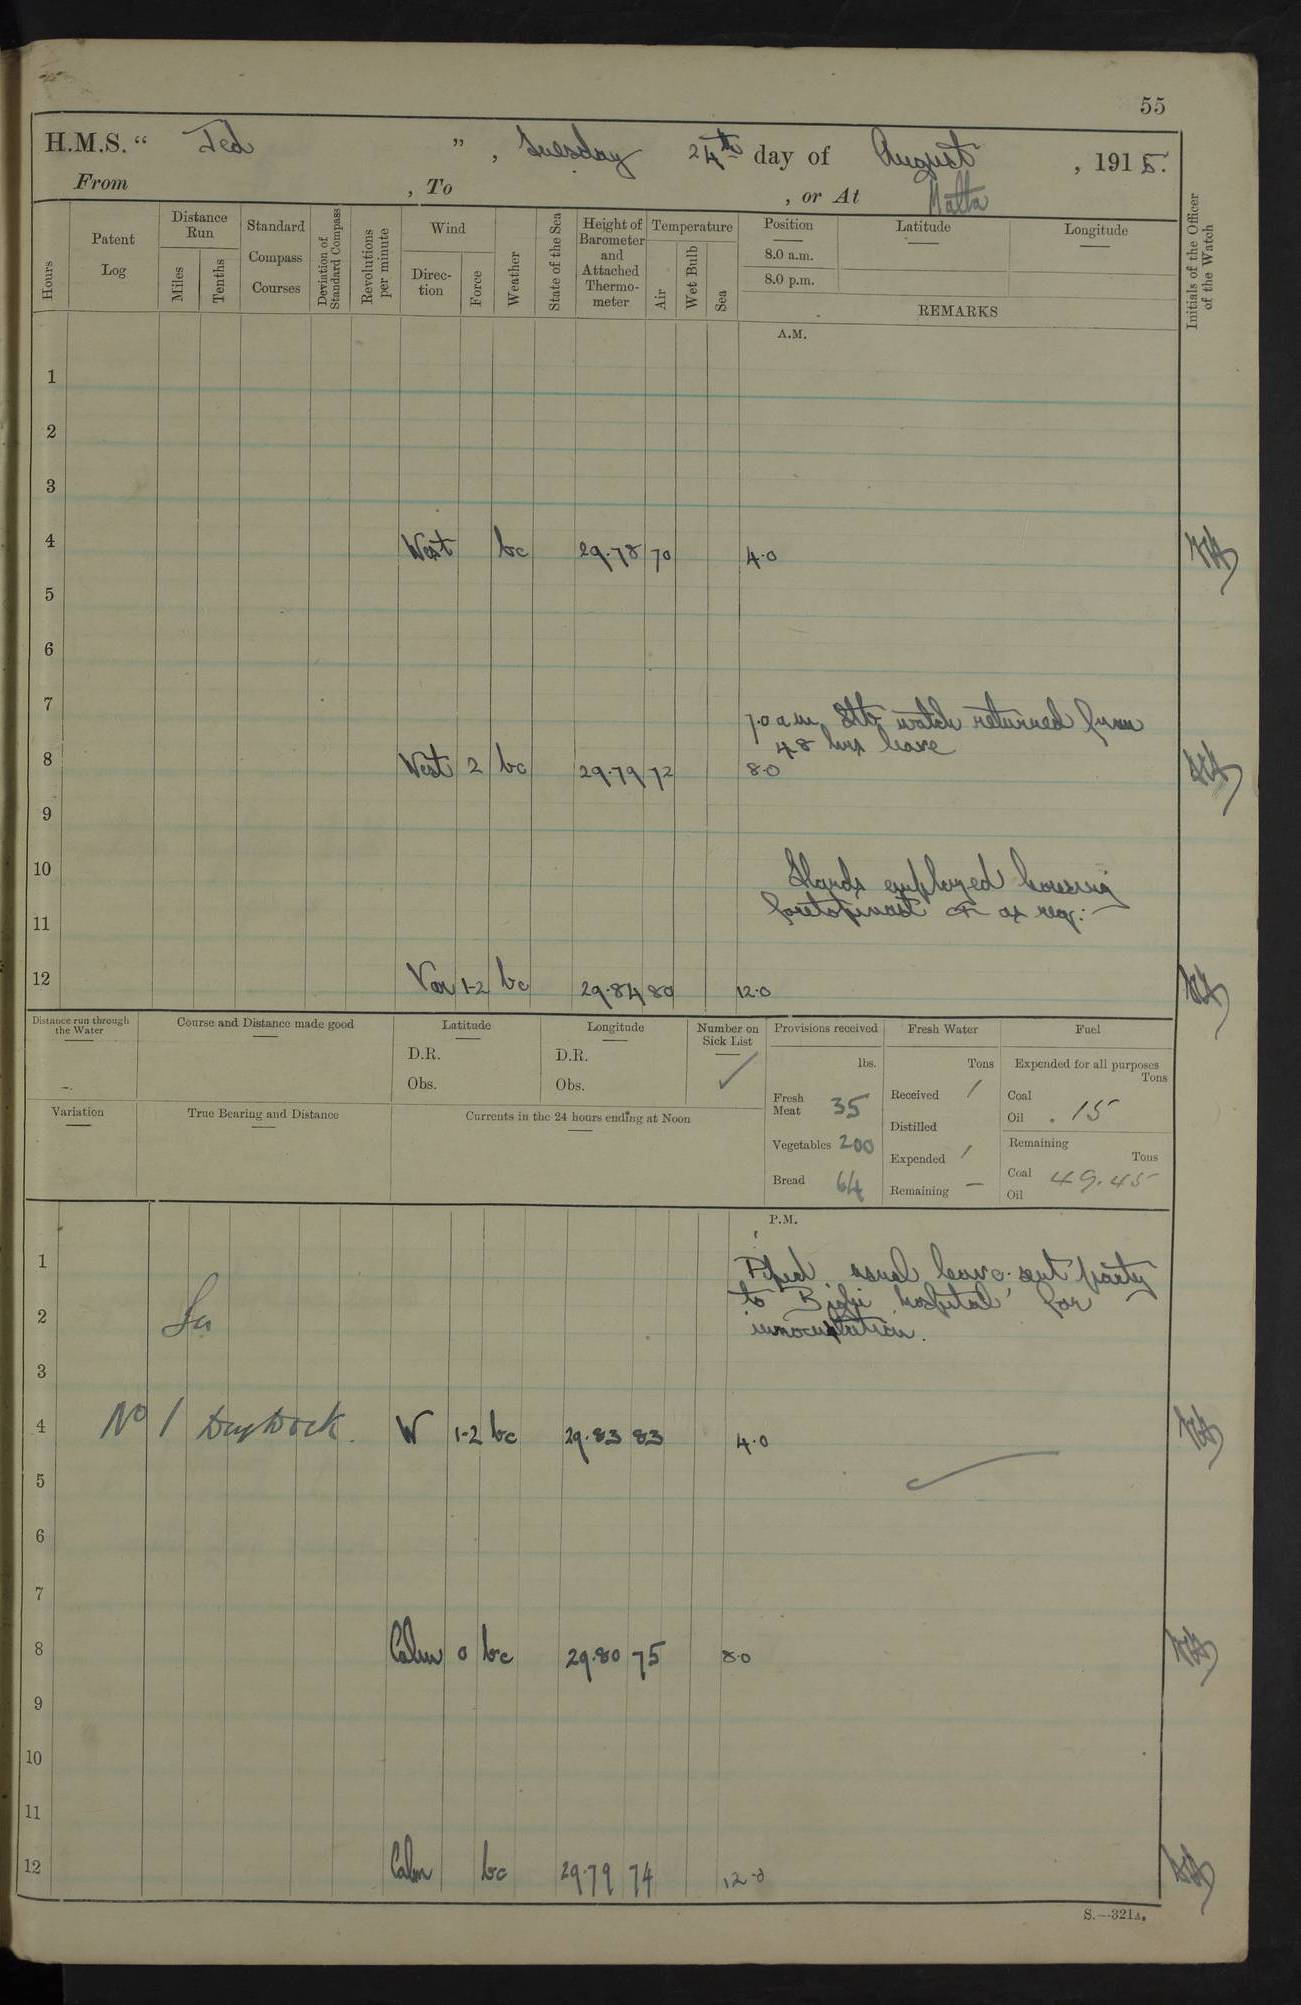 55
H.M.S. “ Jed ” , Tuesday 24th day of August , 1915.
From , To , or At Malta
Hours
Patent Log
Distance Run
Miles
Tenths
Standard Compass Courses
Deviation of Standard Compass
Revolutions per minute
Wind
Direc-tion
Force
Weather
State of the Sea
Height of Barometer and Attached Thermo-meter
Temperature
Air
Wet Bulb
Sea
Position
8.0 a.m.
8.0 p.m.
Latitude
Longitude
REMARKS
Initials of the Officer of the Watch
A.M.
1
2
3
4 West bc 29.78 70 4.0
5
6
7
7.0 a.m. Stb watch returned from
48 hrs leave
8 West 2 bc 29.79 72 8.0
9
10
Hands employed housing
foretopmast & as req:
11
12 Var 1-2 bc 29.84 80 12.0
Distance run through the Water
Course and Distance made good
Latitude
D.R.
Obs.
Longitude
D.R.
Obs.
Number on Sick List
Provisions received
lbs.
Fresh Meat 35
Vegetables 200
Bread 64
Fresh Water
Tons
Received 1
Distilled
Expended 1
Remaining —
Fuel
Expended for all purposes
Tons
Coal
Oil .15
Remaining
Tons
Coal 49.45
Oil
Variation
True Bearing and Distance
Currents in the 24 hours ending at Noon
P.M.
1
Piped usual leave. sent party
to Bighi hospital for
innoculation.
2 In
3
4 No 1 Dry Dock. W 1-2 bc 29.83 83 4.0
5
6
7
8 Calm 0 bc 29.80 75 8.0
9
10
11
12 Calm bc 29.79 74 12.0
S.—321A.